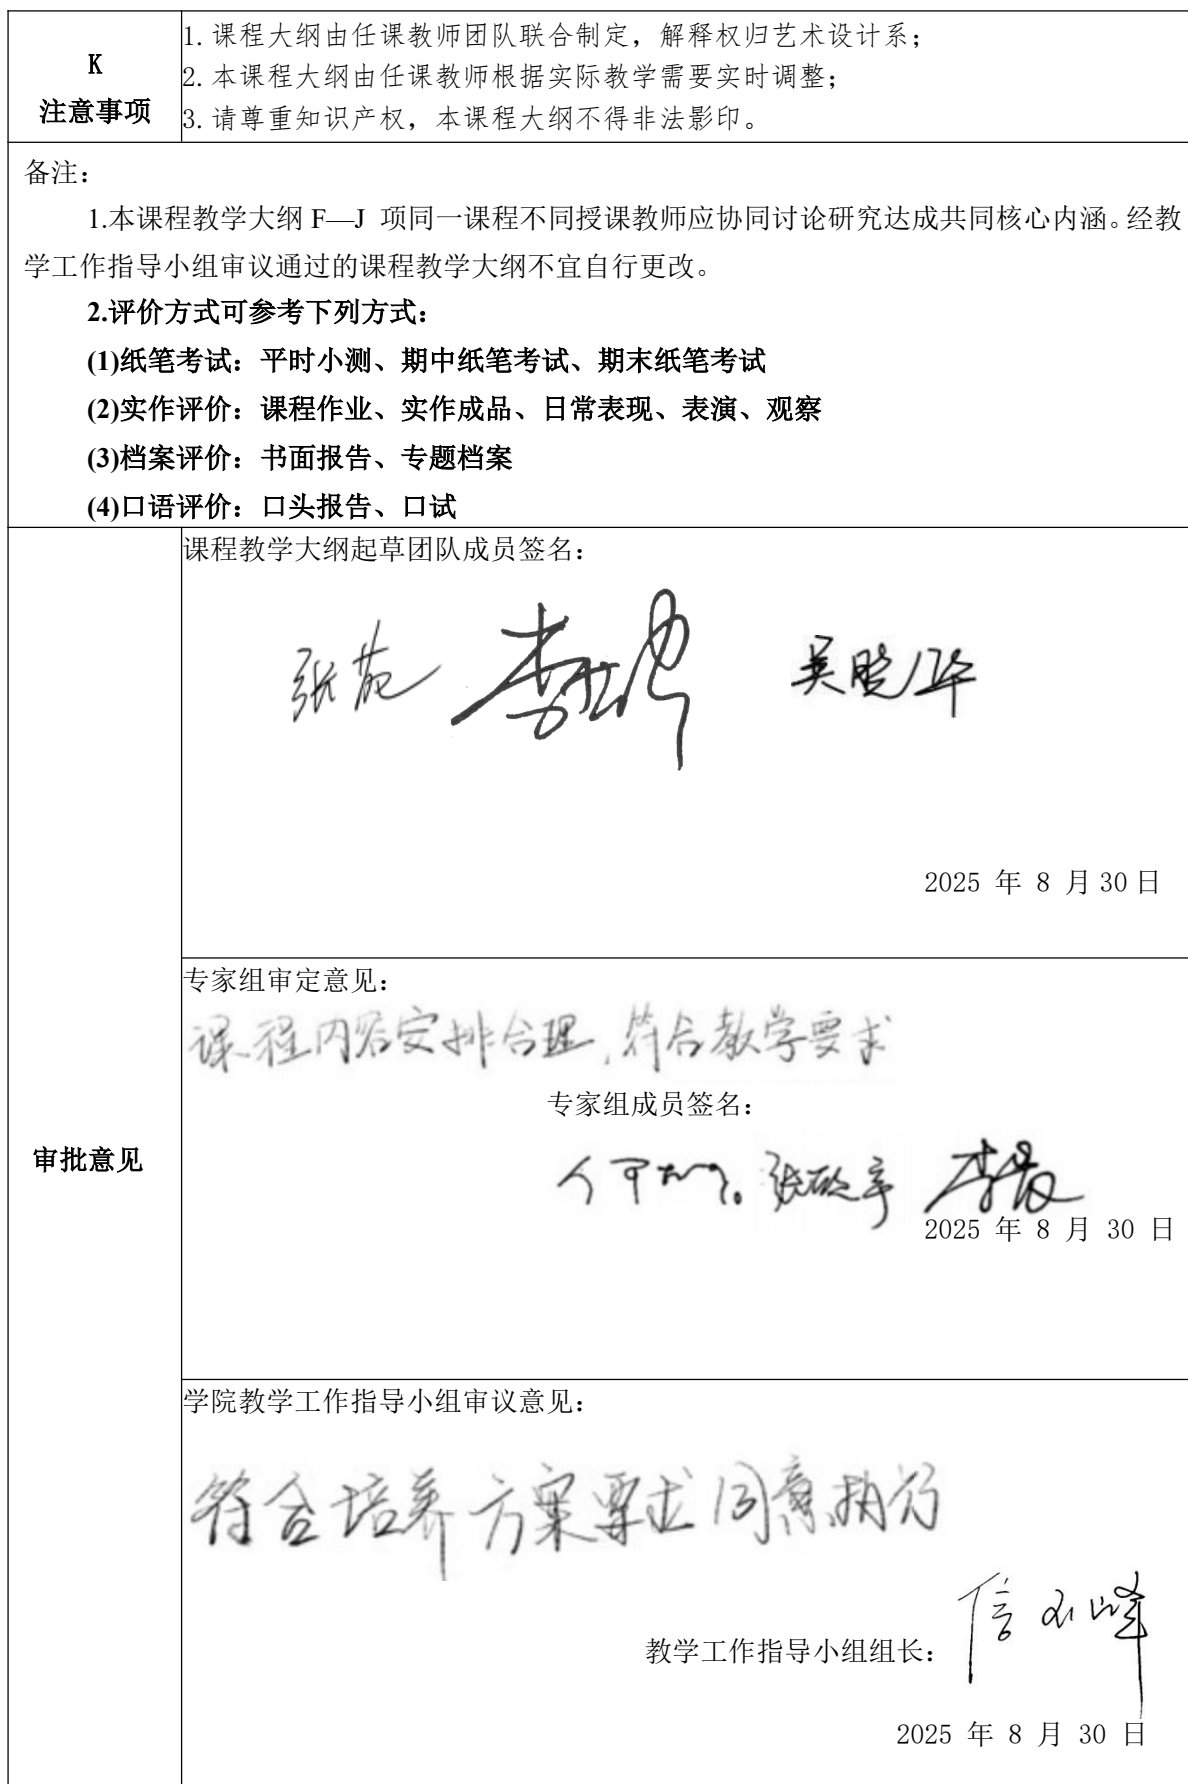 K
注意事项
1. 课程大纲由任课教师团队联合制定，解释权归艺术设计系；
2. 本课程大纲由任课教师根据实际教学需要实时调整；
3. 请尊重知识产权，本课程大纲不得非法影印。
备注：
1.本课程教学大纲 F—J 项同一课程不同授课教师应协同讨论研究达成共同核心内涵。经教
学工作指导小组审议通过的课程教学大纲不宜自行更改。
2.评价方式可参考下列方式：
(1)纸笔考试：平时小测、期中纸笔考试、期末纸笔考试
(2)实作评价：课程作业、实作成品、日常表现、表演、观察
(3)档案评价：书面报告、专题档案
(4)口语评价：口头报告、口试
审批意见
课程教学大纲起草团队成员签名：
张苑 吴晓华
2025 年 8 月 30 日
专家组审定意见：
课程内容安排合理，符合教学要求
专家组成员签名：
2025 年 8 月 30 日
学院教学工作指导小组审议意见：
符合培养方案要求同意执行
教学工作指导小组组长：
2025 年 8 月 30 日